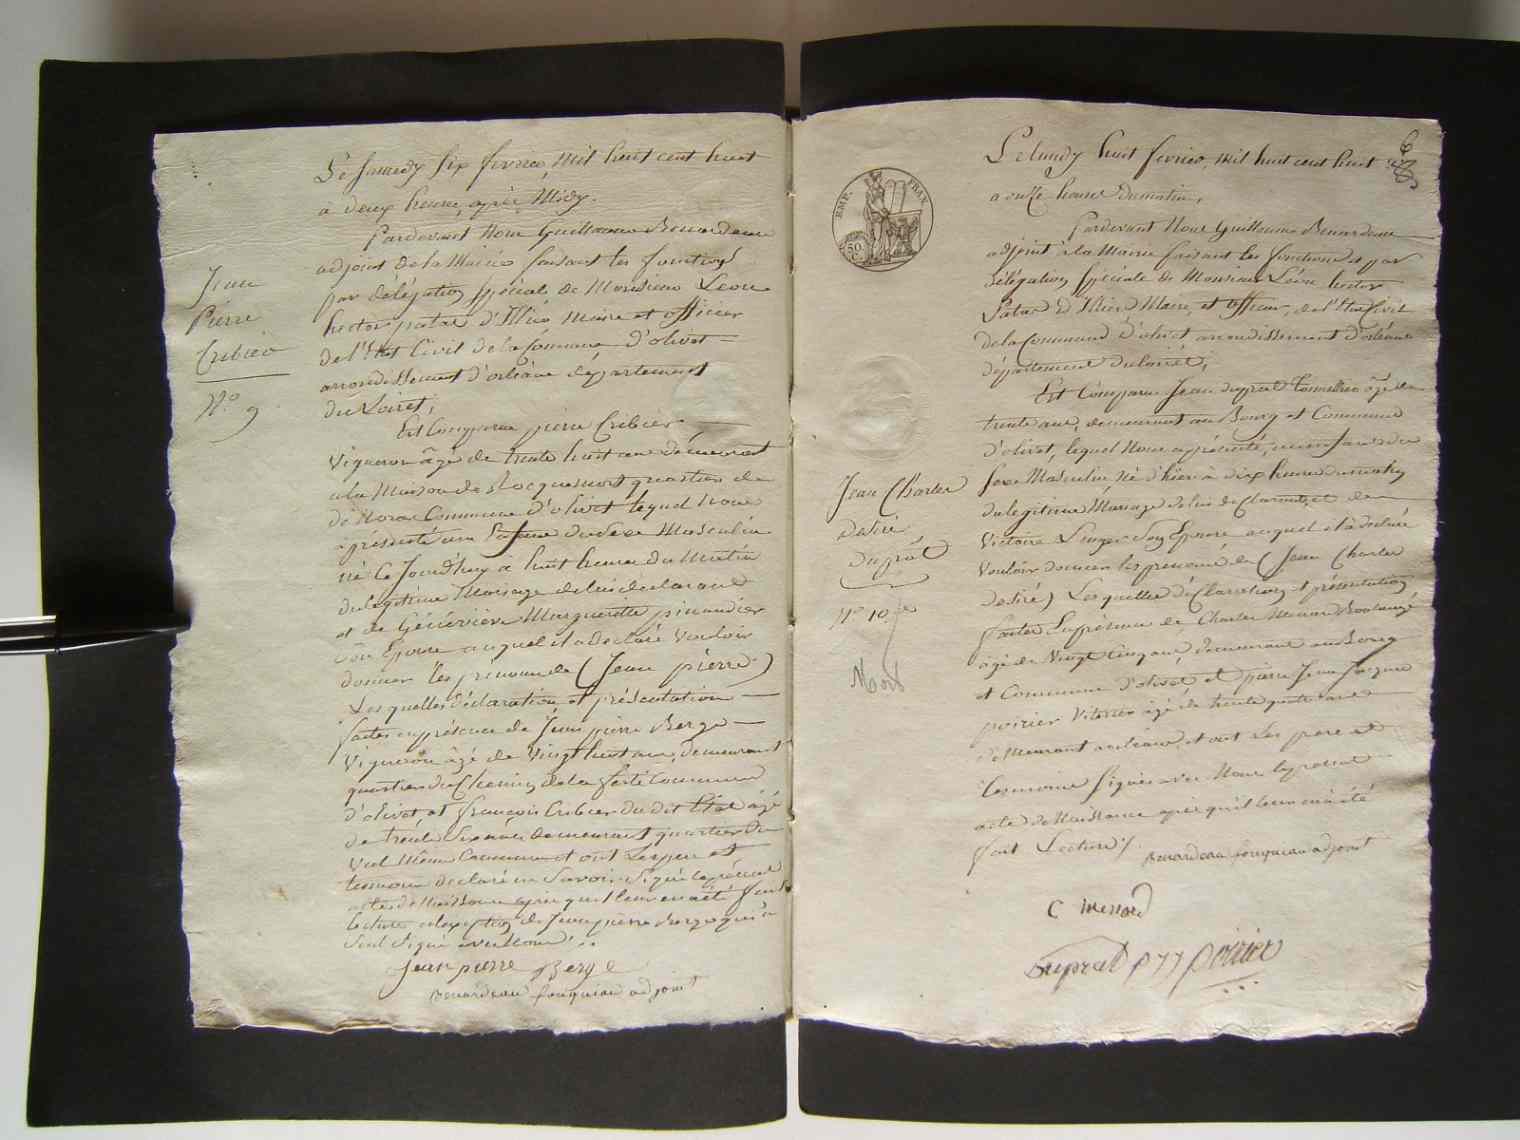 Le Samedy six fevrier, mil huit cent huit
à deux heure, après Midy.
Pardevant Nous Guillaume Benardeau
adjoint de la Mairie faisant les fonctions
par délégation Spéciale de Monsieur Leon
hector patas d'Illiers Maire et officier
de l'Etat Civil de la Commune d'olivet
arrondissement d'orléans département
du Loiret,
Jean
Pierre
Cribier
N.o 9
Est Comparu pierre Cribier
Vigneron âgé de trente huit ans demeurant
a la Maison de quartier de
Commune d'olivet lequel Nous
a présenté un Enfant du Sexe Masculin
né Ce Jourd'huy a huit heure du Matin
du legitime Mariage de lui declarant
et de Géneviève Marguerite
Son Epouse auquel il a declaré Vouloir
donner les prénoms de (Jean pierre)
Les quelles déclaration et présentation
faites en présence de Jean pierre Berge
Vigneron âgé de Vingt huit ans, demeurant
quartier du Chemin de la ferté Commune
d'olivet, et françois Cribier du dit Etat âgé
de trente Six ans demeurant quartier du
Val Même Commune et ont Les pere et
temoins declaré ne Savoir Signé le présent
acte de Naissance après qu'il leur en a été fait
lecture a l'exception de Jean pierre Berge qui a
Seul Signé avec Nous
Jean pierre Berge
Benardeau fouqueau adjoint
6
EMP. FRAN.
50 C.
Le lundy huit fevrier, mil huit cent huit
a onze heure du matin,
Pardevant Nous Guillaume Benardeau
adjoint à la Mairie faisant les fonctions et par
délégation Spéciale de Monsieur Léon hector
Patas d'Illiers, Maire, et officier, de l'Etat Civil
de la Commune d'olivet arrondissement d'orléans
département du Loiret,
Est Comparu Jean duprat tonnellier âgé de
trente ans, demeurant au Bourg et Commune
d'olivet, lequel Nous a présenté, un enfant du
Sexe Masculin Né d'hier à dix heure du matin
du legitime Mariage de lui declarant, et de
Victoire Son Epouse auquel il a declaré
Vouloir donner les prénoms de (Jean Charles
desiré) Les quelles déclaration et présentation
faites En présence de Charles Menard Boulangé
âgé de Vingt Cinq ans, demeurant au Bourg
et Commune d'olivet et pierre Jean Jacques
poirier Vitrier âgé de trente quatre ans
demeurant a orléans, et ont Les pere et
temoins signés avec Nous le present
acte de Naissance après qu'il leur en a été
fait Lecture.
Jean Charles
desiré
duprat
N.o 10
Mort
Benardeau fouqueau adjoint
C menard
duprat p j j poirier